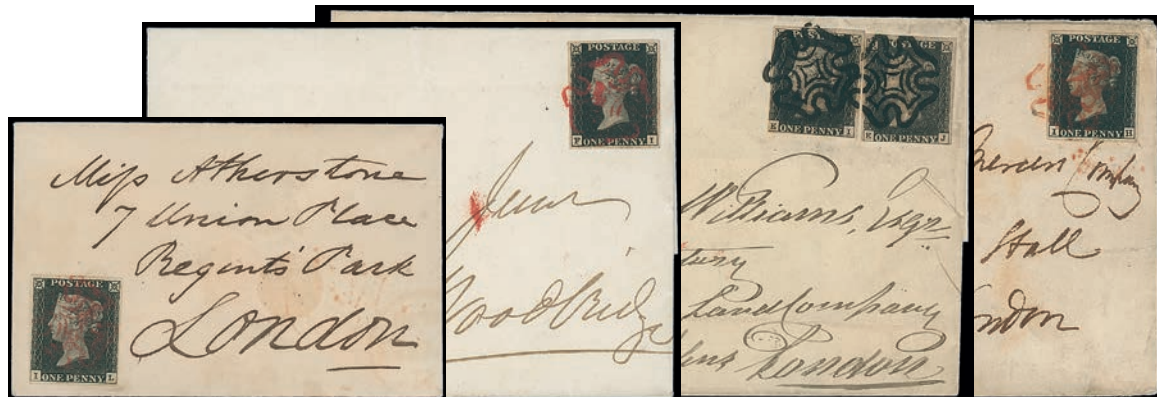 Miss Atherstone
7 Union Place
Regent's Park
London
POSTAGE
I L
ONE PENNY
POSTAGE
F I
ONE PENNY
WoodBridge
POSTAGE
E I
ONE PENNY
POSTAGE
E J
ONE PENNY
Williams, Esqr
Land Company
London
POSTAGE
I H
ONE PENNY
Company
Hall
ondon